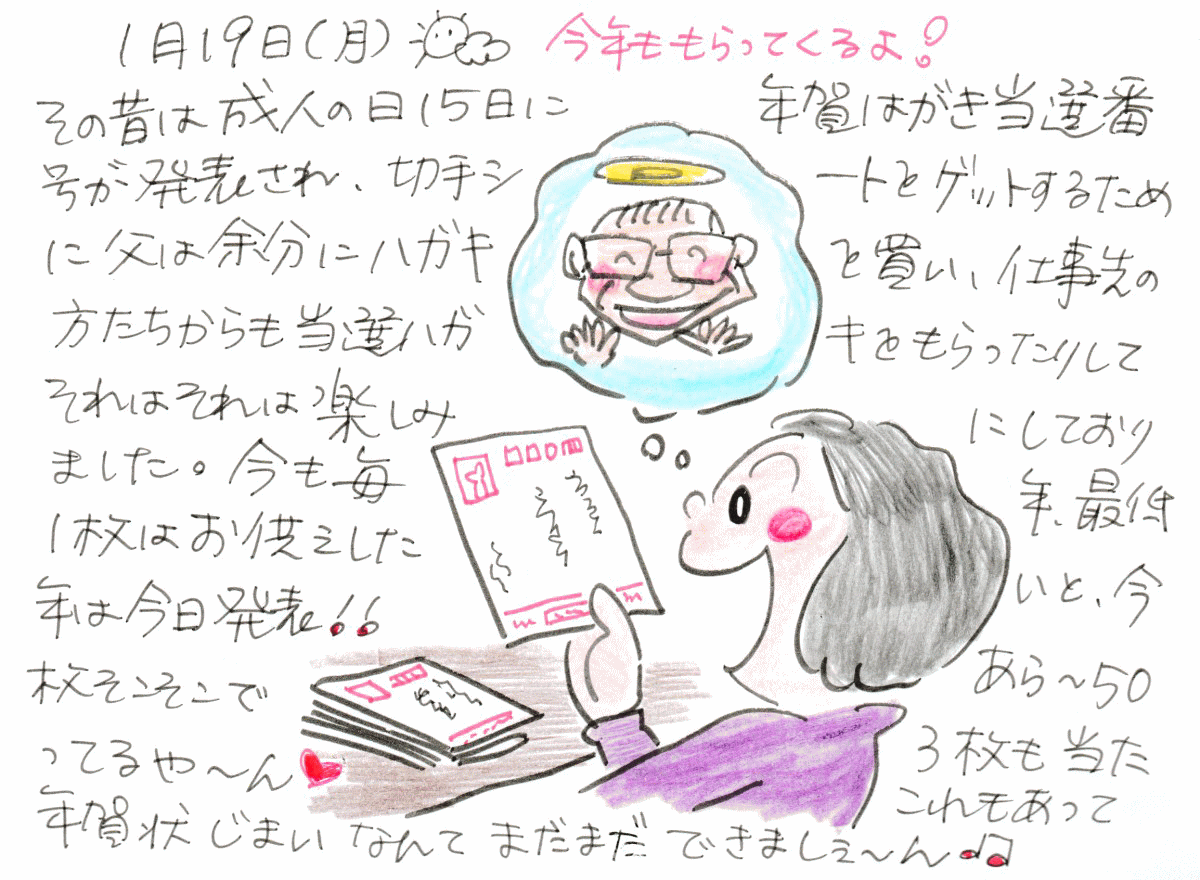 1月19日(月) 今年ももらってくるよ!
その昔は成人の日15日に 年賀はがき当選番
号が発表され、切手シ ートをゲットするため
に父は余分にハガキ を買い、仕事先の
方たちからも当選ハガ キをもらったりして
それはそれは楽しみ にしており
ました。今も毎 年、最低
1枚はお供えした いと、今
年は今日発表!!
あら〜50
枚そこそこで 3枚も当た
ってるや〜ん これもあって
年賀状じまいなんてまだまだできましぇ〜ん